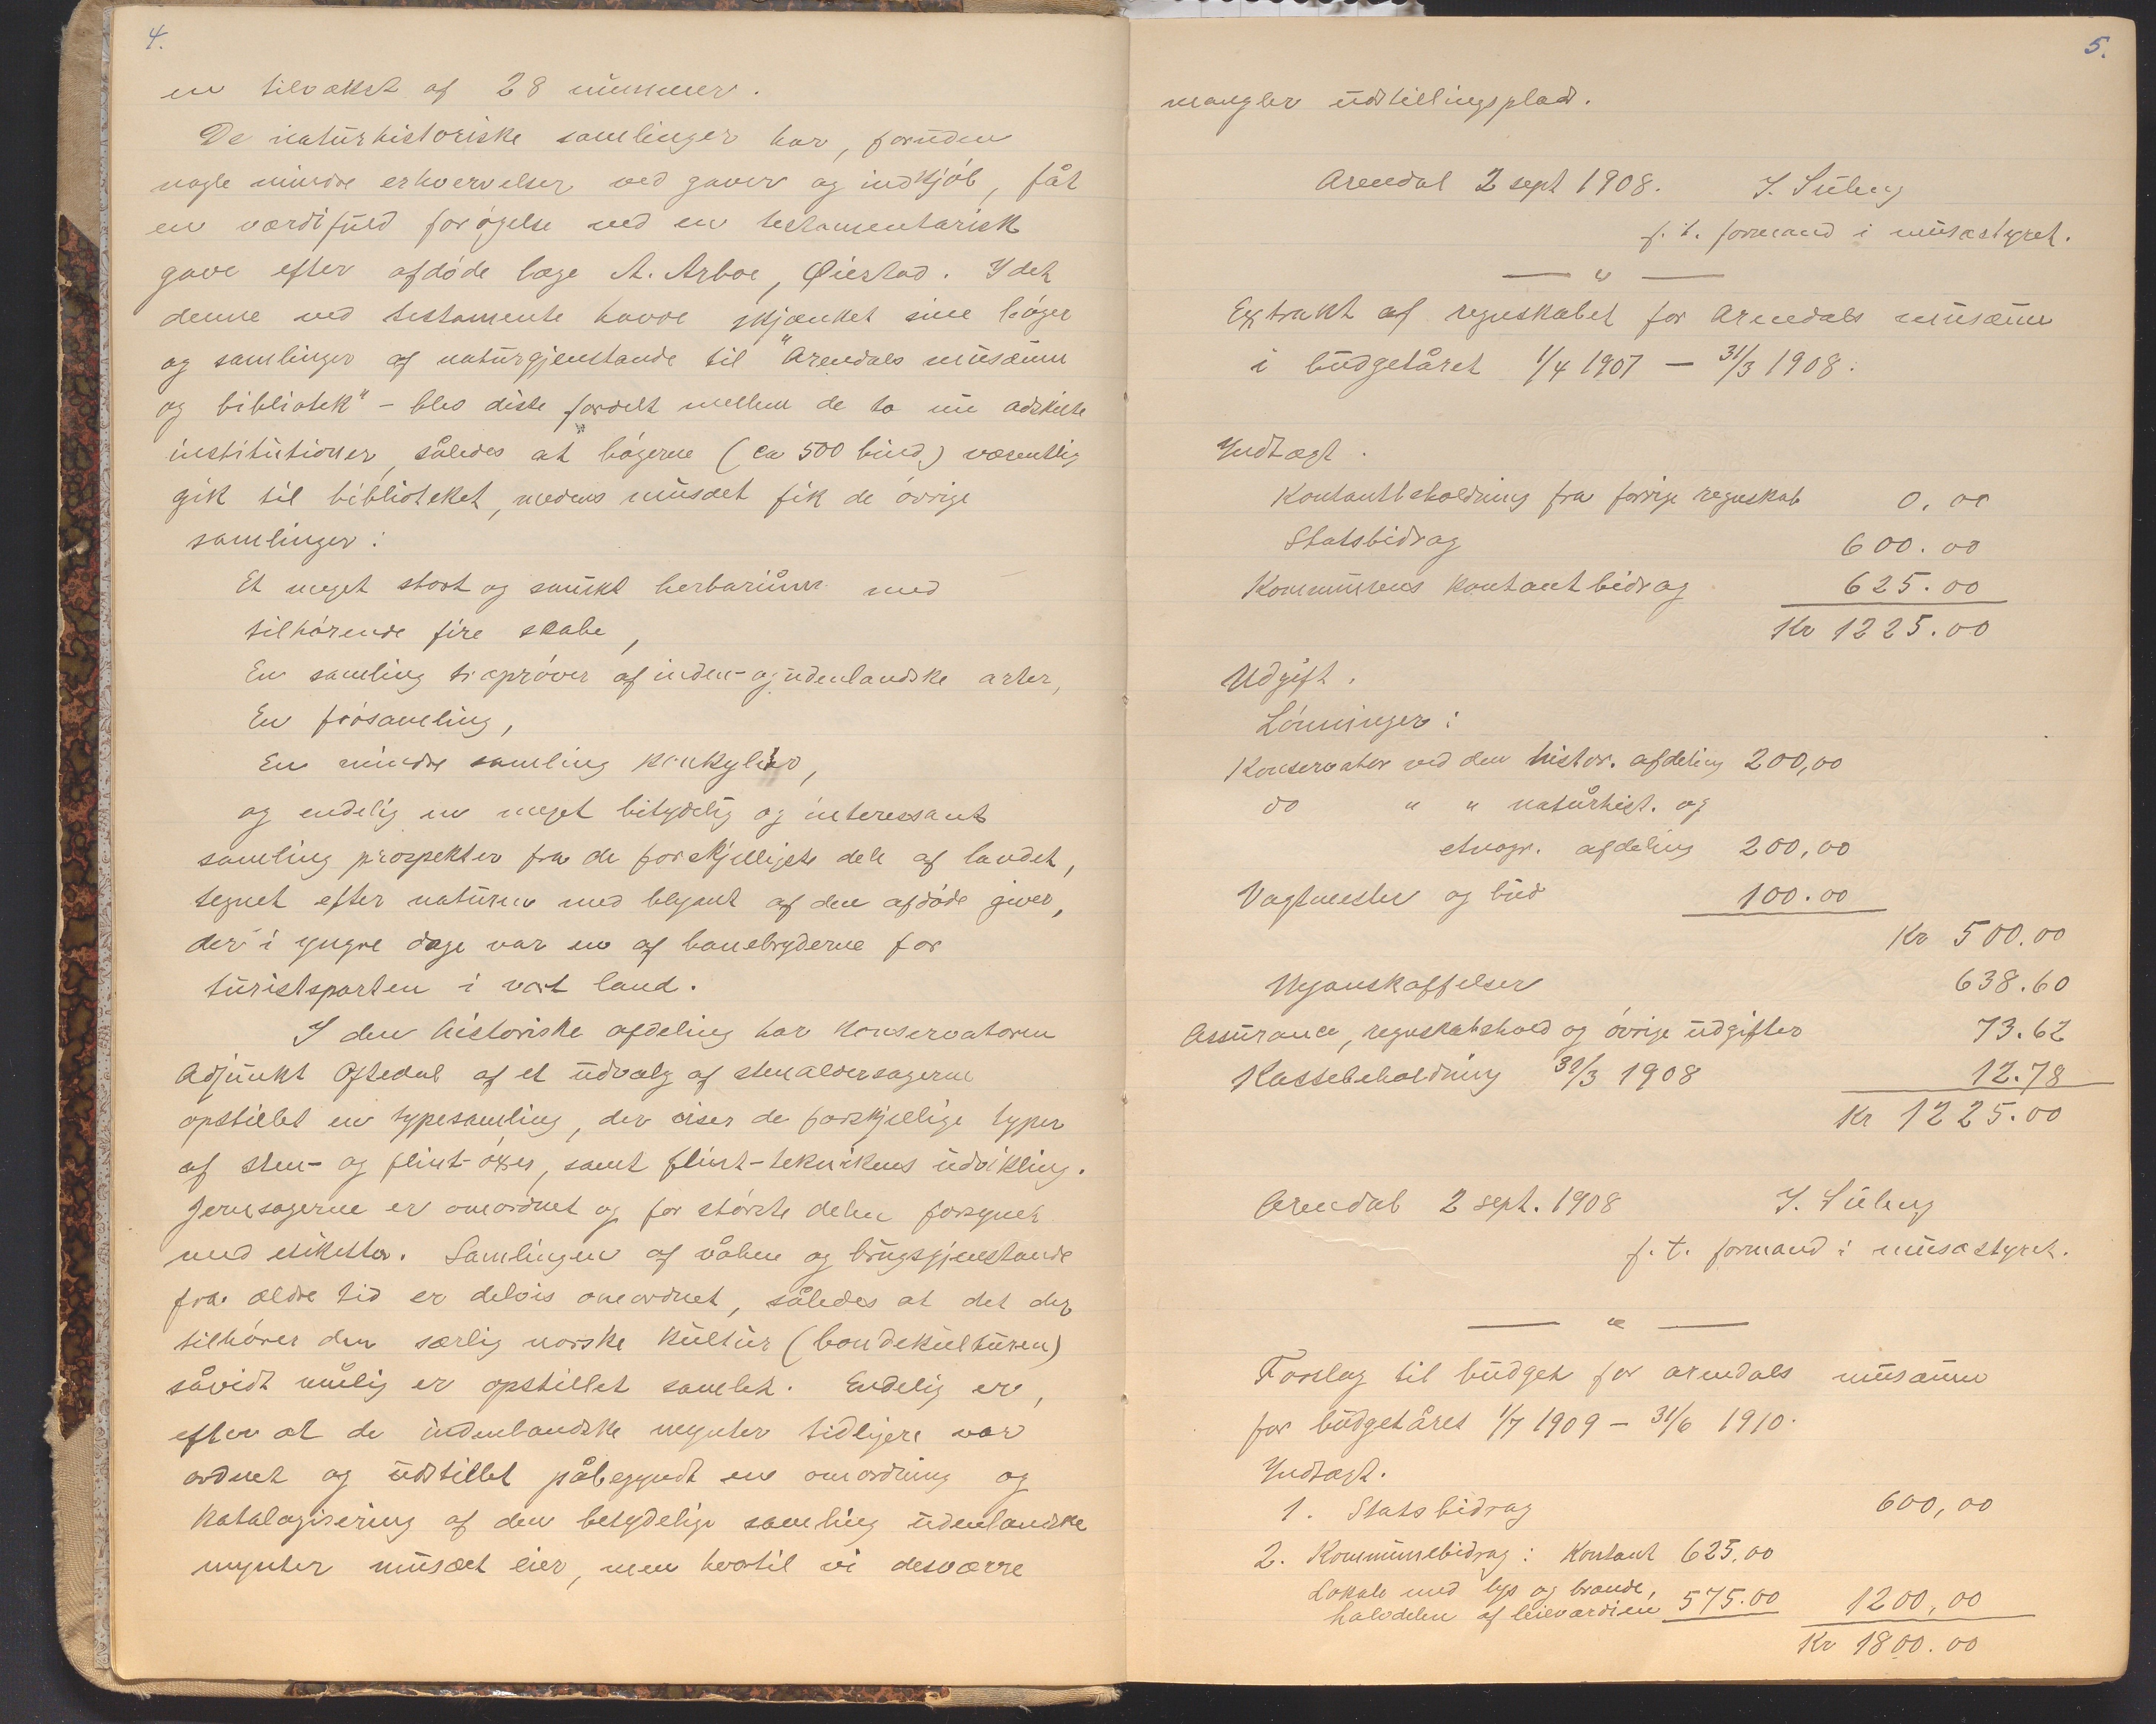 4.
en tilvækst af 28 nummer.
De naturhistoriske samlinger har, foruden
nogle mindre erhvervelser ved gaver og indkjøb, fåt
en værdifuld forøgelse ved en testamentarisk
gave efter afdøde læge A. Arboe, Øiestad. Idet
denne ved testamente havde skjænket sine bøger
og samlinger af naturgjenstande til "Arendals musæum
og bibliotek" - blev disse fordelt mellem de to nu adskilte
institutioner, således at bøgerne (ca 500 bind) væsentlig
gik til biblioteket, medens musæet fik de øvrige
samlinger:
Et meget stort og smukt herbarium med
tilhørende fire skabe,
En samling træprøver af inden- og udenlandske arter,
En frøsamling,
En mindre samling konkylier,
og endelig en meget betydelig og interessant
samling prospekter fra de forskjelligste dele af landet,
tegnet efter naturen med blyant af den afdøde giver,
der i yngre dage var en af banebryderne for
turistsporten i vort land.
I den historiske afdeling har konservatoren
Adjunkt Oftedal af et udvalg af stenaldersagerne
opstillet en typesamling, der viser de forskjellige typer
af sten- og flint-øxer, samt flint-teknikens udvikling.
Jernsagerne er omordnet og for største delen forsynet
med etiketter. Samlingen af våben og brugsgjenstande
fra ældre tid er delvis omordnet, således at det der
tilhører den særlig norske kultur (bondekulturen)
såvidt mulig er opstillet samlet. Endelig er,
efter at de indenlandske mynter tidligere var
ordnet og udstillet påbegyndt en omordning og
katalogisering af den betydelige samling udenlandske
mynter musæet eier, men hvortil vi desværre
5.
mangler udstillingsplads.
Arendal 2 sept 1908. J. Süleng
f. t. formand i musæstyret.
— " —
Extrakt af regnskabet for Arendals musæum
i budgetåret 1/4 1907 — 31/3 1908.
Indtægt.
Kontantbeholdning fra forrige regnskab 0,00
Statsbidrag 600.00
Kommunens kontantbidrag 625.00
Kr 1225.00
Udgift.
Lønninger:
Konservator ved den histor. afdeling 200,00
do " " naturhist. og
etnogr. afdeling 200,00
Vagtmester og bud 100.00
Kr 500.00
Nyanskaffelser 638.60
Assurance, regnskabshold og øvrige udgifter 73.62
Kassebeholdning 31/3 1908 12.78
Kr 1225.00
Arendal 2 sept. 1908 J. Süleng
f. t. formand i musæstyret.
— " —
Forslag til budget for arendals musæum
for budgetåret 1/7 1909 - 31/6 1910.
Indtægt.
1. Statsbidrag 600,00
2. Kommunebidrag: Kontant 625,00
Lokale med lys og brænde,
halvdelen af leieværdien 575.00 1200,00
Kr 1800.00